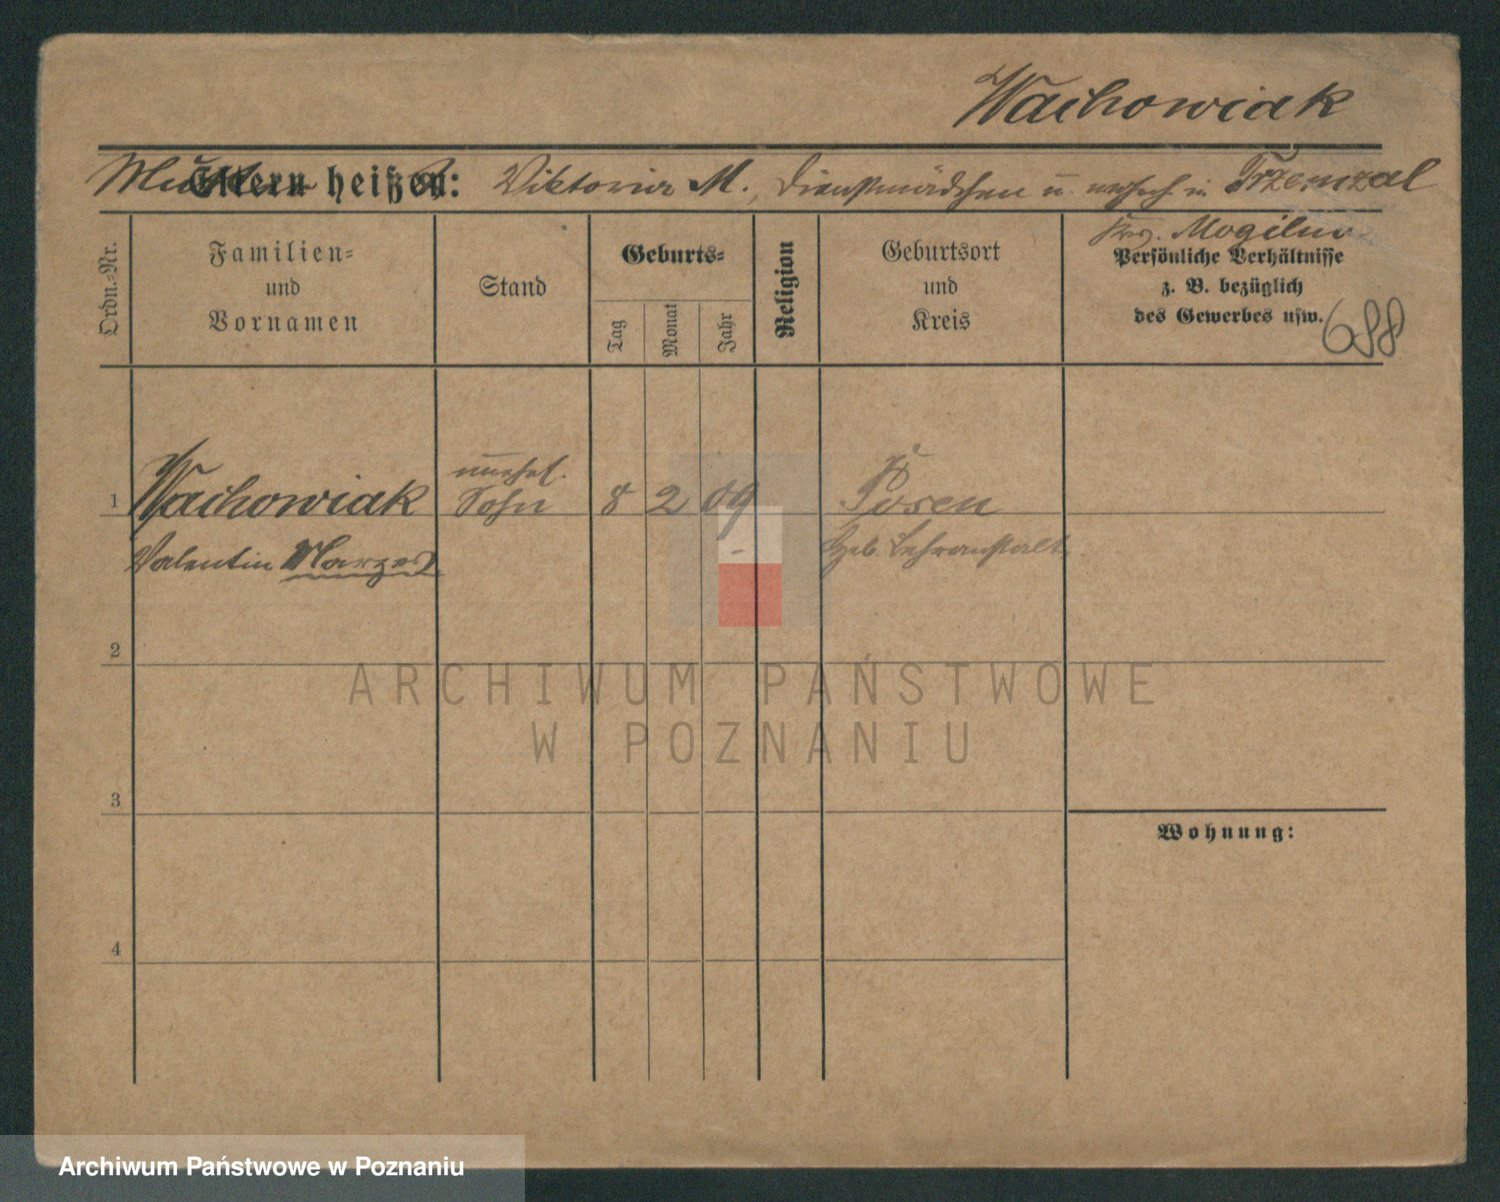 Wachowiak
Mutter
Eltern heißen: Viktoria M., Dienstmädchen u. wohnh in Trzemzal
Krs. Mogilno
Ordn.-Nr.
Familien=
und
Vornamen
Stand
Geburts=
Tag
Monat
Jahr
Religion
Geburtsort
und
Kreis
Persönliche Verhältnisse
z. B. bezüglich
des Gewerbes usw.
698
1 Wachowiak
unehel.
Sohn 8 2 09 Posen
Valentin
Geb. Lehranstalt
2
3
4
Wohnung:
ARCHIWUM PAŃSTWOWE
W POZNANIU
Archiwum Państwowe w Poznaniu